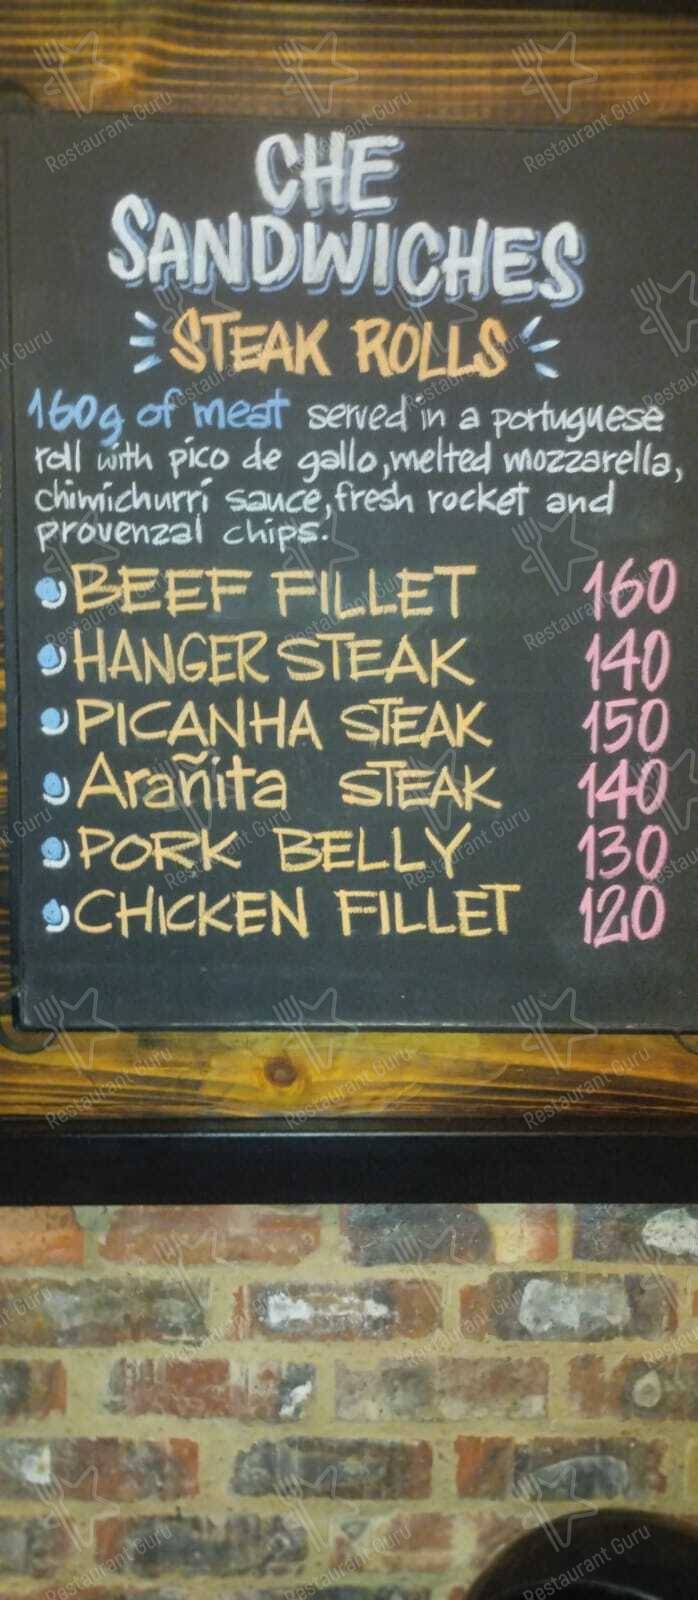 CHE
SANDWICHES
STEAK ROLLS
160g of meat served in a portuguese
roll with pico de gallo, melted mozzarella,
chimichurri sauce, fresh rocket and
provenzal chips.
BEEF FILLET 160
HANGER STEAK 140
PICANHA STEAK 150
Arañita STEAK 140
PORK BELLY 130
CHICKEN FILLET 120
Restaurant Guru